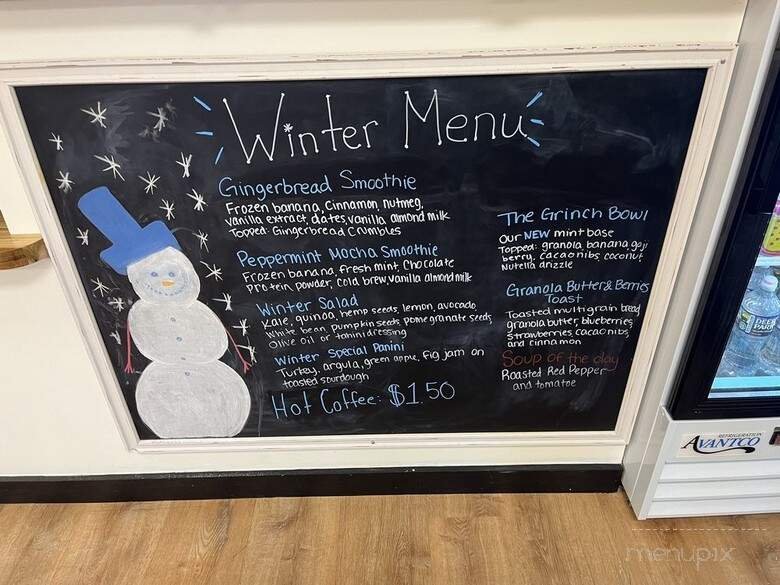 Winter Menu
Gingerbread Smoothie
Frozen banana, Cinnamon, nutmeg,
vanilla extract, dates, vanilla almond milk
Topped: Gingerbread Crumbles
Peppermint Mocha Smoothie
Frozen banana, fresh mint, Chocolate
Protein powder, cold brew, vanilla almond milk
Winter Salad
Kale, quinoa, hemp seeds, lemon, avocado
White bean, pumpkin seeds, pomegranate seeds,
Olive oil or tahini dressing
Winter Special Panini
Turkey, argula, green apple, fig jam on
toasted sourdough
Hot Coffee: $1.50
The Grinch Bowl
Our NEW mint base
Topped: granola, banana, goji
berry, cacao nibs, coconut,
Nutella drizzle
Granola Butter & Berries
Toast
Toasted multigrain bread,
granola butter, blueberries,
strawberries, cacao nibs,
and cinnamon
Soup of the day
Roasted Red Pepper
and tomatoe
REFRIGERATION
AVANTCO
DEER
PARK
menupix